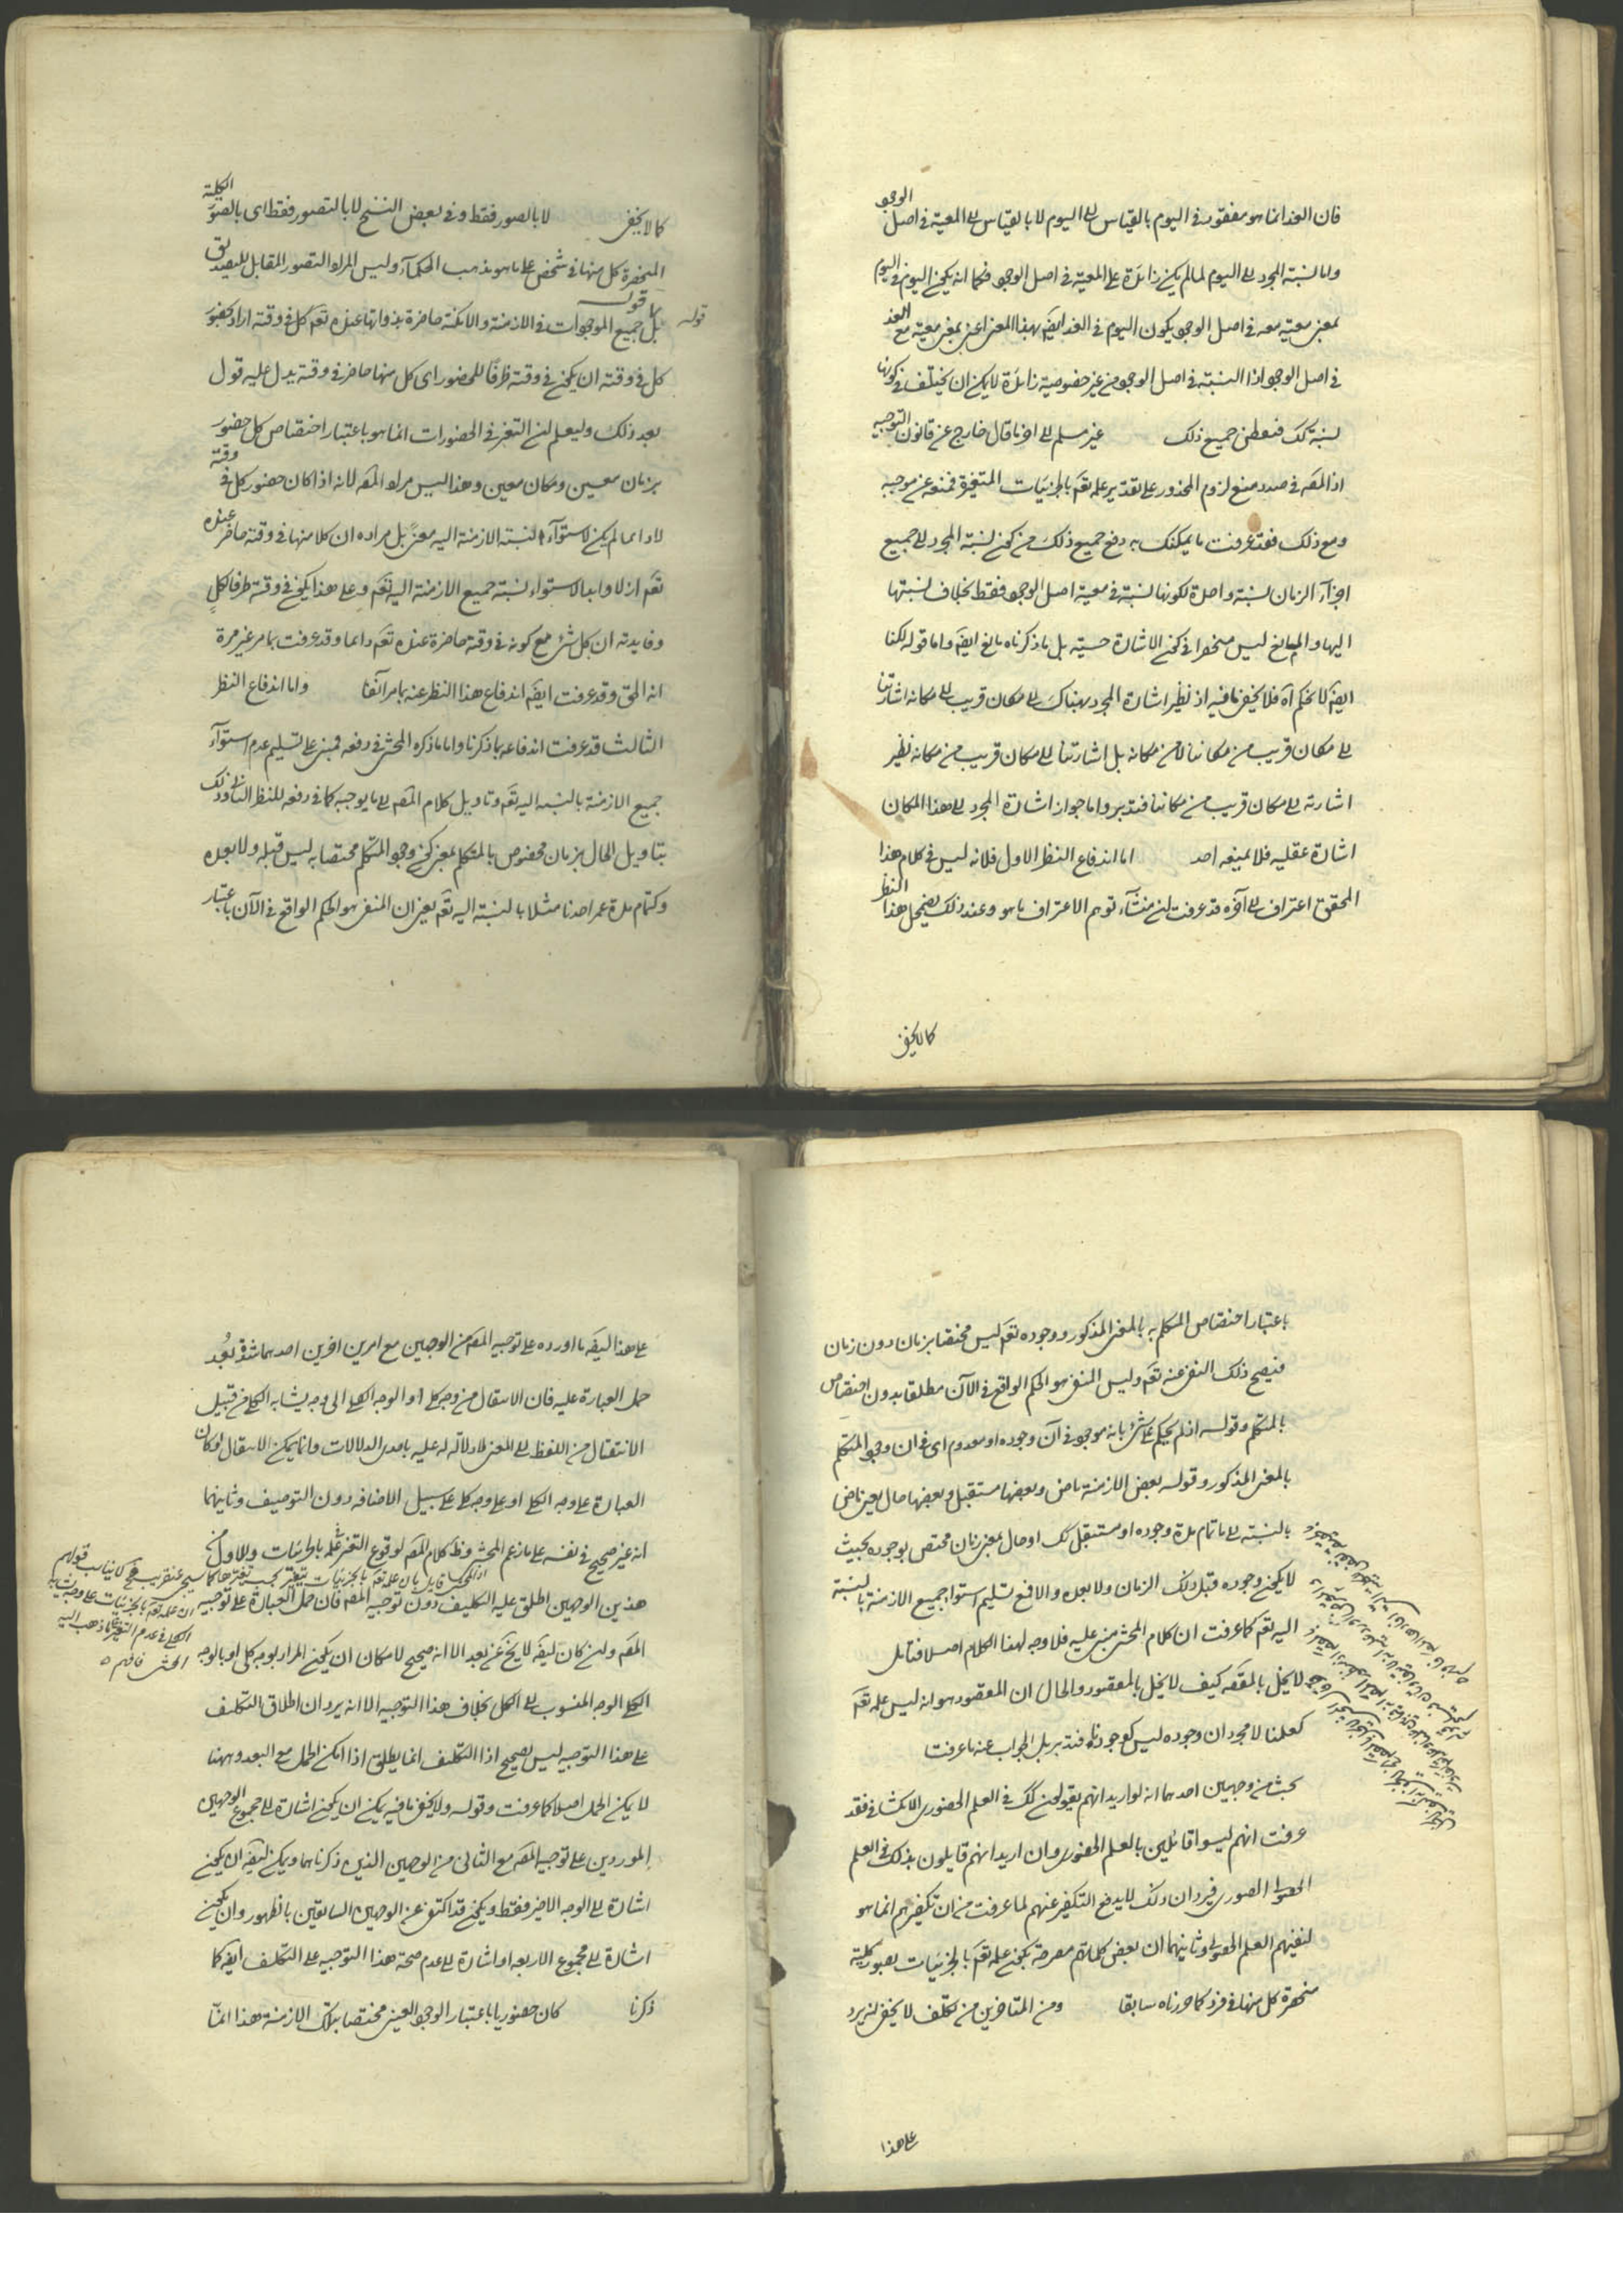 فان الغد انما هو مفقود فى اليوم بالقياس الى اليوم لا بالقياس الى المعية فى اصل الوجود
واما نسبة المجرد الى اليوم لما لم يكن زائدة على المعية فى اصل الوجود فكما انه يكون اليوم فى اليوم
بمعنى معيته معه فى اصل الوجود يكون اليوم فى الغد ايضا بهذا المعنى اعنى بمعنى معيته مع الغد
فى اصل الوجود اذا النسبة فى اصل الوجود من غير خصوصية زائدة لا يمكن ان يختلف فى كونها
نسبة كك فتفطن جميع ذلك غير مسلم الى اخر ما قال خارج عن قانون التوجيه
اذ المصه فى صدد منع لزوم المحذور على تقدير علمه تعم بالجزئيات المتغيرة فمنعه عن موجبه
ومع ذلك فقد عرفت ما يمكنك به دفع جميع ذلك من كون نسبة المجرد الى جميع
اجزآء الزمان نسبة واحدة لكونها نسبة فى معية اصل الوجود فقط بخلاف نسبتها
اليها والمانع ليس منحصرا فى كون الاشارة حسية بل ما ذكرناه مانع ايضا واما قوله لكنا
ايضا لا نحكم آه فلا يخفى ما فيه اذ نظير اشارة المجرد بهناك الى مكان قريب الى مكانه اشارتنا
الى مكان قريب من مكاننا لا من مكانه بل اشارتنا الى مكان قريب من مكانه نظير
اشارته الى مكان قريب من مكاننا فتدبر واما جواز اشارة المجرد الى هذا المكان
اشارة عقليه فلا يمنعه احد اما اندفاع النظر الاول فلانه ليس فى كلام هذا
المحقق اعتراف الى آخره قد عرفت ان منشآء توهم الاعتراف ما هو وعند ذلك يضمحل هذا النظر
كما لا يخفى
كما لا يخفى لا بالصور فقط وفى بعض النسخ لا بالتصور فقط اى بالصور الكلية
المنحصرة كل منها فى شخص على ما هو مذهب الحكمآء وليس المراد التصور المقابل للتصديق
قوله بل جميع الموجودات فى الازمنة والامكنة حاضرة بذواتها عنده تعم كل فى وقته اراد بحضور
كل فى وقته ان يكون فى وقته ظرفًا للحضور اى كل منها حاضر فى وقته يدل عليه قول
بعد ذلك وليعلم ان التغير فى الحضورات انما هو باعتبار اختصاص كل حضور
بزمان معين ومكان معين وهذا ليس مراد المصه لانه اذا كان حضور كل فى وقته
لا دائما لم يكن لاستوآء نسبة الازمنة اليه معنى بل مراده ان كلا منها فى وقته حاضر عنده
تعم ازلا وابدا لاستواء نسبة جميع الازمنة اليه تعم وعلى هذا يكون فى وقته ظرفا لكل
وفايدته ان كل شئ مع كونه فى وقته حاضرة عنده تعم دائما وقد عرفت بما مر غير مرة
انه الحق وقد عرفت ايضا اندفاع هذا النظر عنه بما مر آنفا واما اندفاع النظر
الثالث قد عرفت اندفاعه بما ذكرنا واما ما ذكره المحشى فى دفعه فمبنى على تسليم عدم استوآء
جميع الازمنة بالنسبه اليه تعم وتاويل كلام المصه الى ما يوجبه كما فى دفعه للنظر الثانى وذلك
بتاويل الحال بزمان مخصوص بالمتكلم بمعنى كون وجود المتكلم مختصا به ليس قبله ولا بعده
وكتمام مدة عمر احدنا مثلا بالنسبة اليه تعم يعنى ان المنفى هو الحكم الواقع فى الآن باعتبار
باعتبار اختصاص المتكلم به بالمعنى المذكور ووجوده تعم ليس مختصا بزمان دون زمان
فيصح ذلك النفى عنه تعم وليس المنفى هو الحكم الواقع فى الآن مطلقا بدون اختصاص
بالمتكلم وقوله اذ لم يحكم على شئ بانه موجود فى آن وجوده او معدوم اى فى ان وجود المتكلم
بالمعنى المذكور وقوله بعض الازمنة ماض وبعضها مستقبل وبعضها حال يعنى ماض
بالنسبة الى ما تمام مدة وجوده او مستقبل كك او حال بمعنى زمان مختص بوجوده بحيث
لا يكون وجوده قبل ذلك الزمان ولا بعده والا فمع تسليم استواء جميع الازمنة بالنسبة
اليه تعم كما عرفت ان كلام المحشى مبنى عليه فلا وجه لهذا الكلام اصلا فتامل
لا يخل بالمقصه كيف لا يخل بالمقصود والحال ان المقصود هو انه ليس علمه تعم
كعلمنا لا مجرد ان وجوده ليس كوجودنا فتدبر بل الجواب عنه ما عرفت
بحث من وجهين احدهما انه لو اريد انهم يقولون كك فى العلم الحضورى الانكشافى فقد
عرفت انهم ليسوا قائلين بالعلم الحضورى وان اريد انهم قايلون بذلك فى العلم
الحصولى الصورى فيرد ان ذلك لا يدفع التكفير عنهم لما عرفت من ان تكفيرهم انما هو
لنفيهم العلم الحضورى وثانيهما ان بعض كلماتهم مصرحة بكون علمه تعم بالجزئيات بصور كلية
منحصرة كل منها فى فرد كما حررناه سابقا ومن المتاخرين من تكلف لا يخفى انه يرد
على هذا
على هذا ايضا ما اورده على توجيه المصه من الوجهين مع امرين اخرين احدهما شدة بُعد
حمل العبارة عليه فان الانتقال من وجه كلى او الوجه الكلى الى وجه يشابه الكلى من قبيل
الانتقال من اللفظ الى المعنى لا دلالة له عليه باحدى الدلالات وانما يمكن الانتقال لو كان
العبارة على وجه الكلى او على وجه كلى على سبيل الاضافه دون التوصيف وثانيهما
انه غير صحيح فى نفسه على ما زعم المحشى وظ كلام المصه لوقوع التغير فى علمه بالجزئيات وللاول من
هذين الوجهين اطلق عليه التكليف دون توجيه المصه فان حمل العبارة على توجيه
المصه وان كان ايضا لا يخ عن بعد الا انه صحيح لامكان ان يكون المراد بوجه كلى او بالوجه
الكلى الوجه المنسوب الى الكل بخلاف هذا التوجيه الا انه يرد ان اطلاق التكلف
على هذا التوجيه ليس بصحيح اذا التكلف انما يطلق اذا امكن الحمل مع البعد وههنا
لا يمكن الحمل اصلا كما عرفت وقوله ولا يخفى ما فيه يمكن ان يكون اشارة الى مجموع الوجهين
الموردين على توجيه المصه مع الثانى من الوجهين الذين ذكرناهما ويمكن ايضا ان يكون
اشارة الى الوجه الاخير فقط ويكون قد اكتفى عن الوجهين السابقين بالظهور وان يكون
اشارة الى مجموع الاربعه او اشارة الى عدم صحة هذا التوجيه على التكلف ايضا كما
ذكرنا كان حضوريا باعتبار الوجود العينى مختصا بتلك الازمنة هذا انما